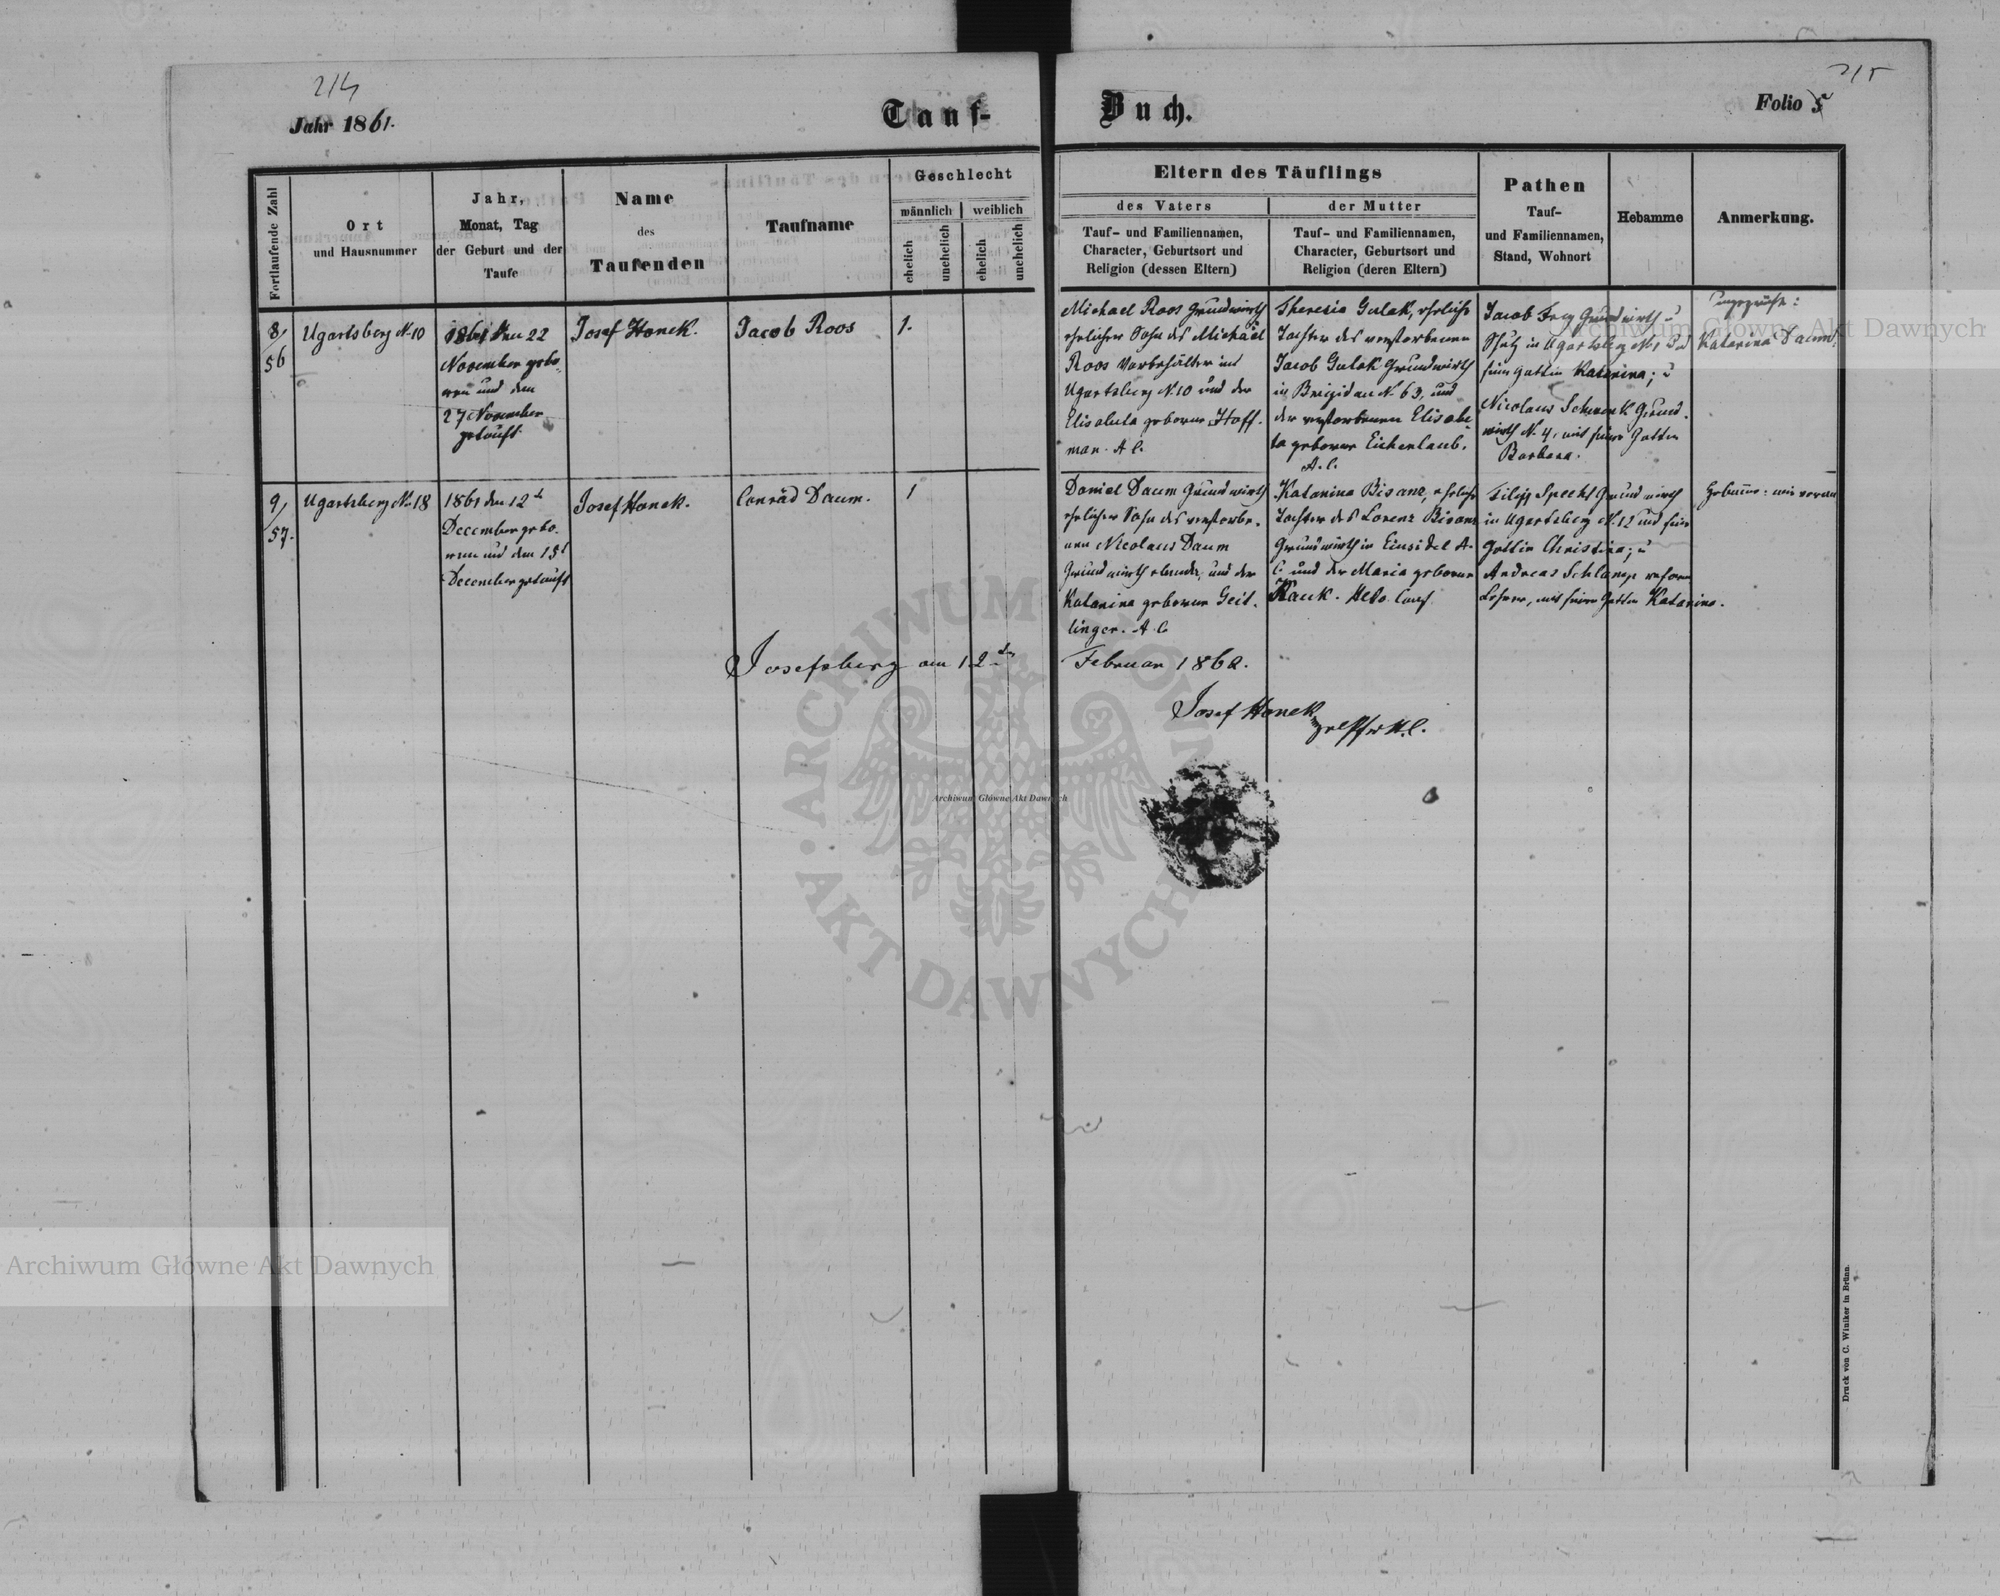 214
215
Jahr 1861.
Tauf-
Buch.
Folio 5
Fortlaufende Zahl
Ort
und Hausnummer
Jahr,
Monat, Tag
der Geburt und der
Taufe
Name
des
Taufenden
Taufname
Geschlecht
männlich
weiblich
ehelich
unehelich
ehelich
unehelich
Eltern des Täuflings
des Vaters
Tauf- und Familiennamen,
Character, Geburtsort und
Religion (dessen Eltern)
der Mutter
Tauf- und Familiennamen,
Character, Geburtsort und
Religion (deren Eltern)
Pathen
Tauf-
und Familiennamen,
Stand, Wohnort
Hebamme
Anmerkung.
8/
56
Ugartsberg N. 10
1861 den 22
November gebo-
ren und den
27 November
getauft
Josef Honek.
Jacob Roos
1.
Michael Roos Grundwirth
ehelicher Sohn des Michael
Roos Vorbehälter in
Ugartsberg N. 10 und der
Elisabeta geborne Hoff-
man. A. C.
Theresia Gulak, eheliche
Tochter des verstorbenen
Jacob Gulak Grundwirth
in Brigidau N. 63, und
der verstorbenen Elisabe-
ta geborne Eichenlaub.
A. C.
Jacob Frey Grundwirth u
in Ugartsberg N. 1 und
seine Gattin Katarina; u
Nicolaus Schmenk Grund-
wirth N. 4, mit seine Gattin
Barbara.
Katarina Daum
9/
57.
Ugartsberg No. 18
1861 den 12t
December gebo-
ren und den 15t
December getauft
Josef Honek.
Conrad Daum.
1
Daniel Daum Grundwirth
ehelicher Sohn des verstorbe-
nen Nicolaus Daum
Grundwirth und der
Katarina geborne Geit-
linger. A. C.
Katarina Bisanz, eheliche
Tochter des Lorenz Bisanz
Grundwirth in Einsidel A.
C. und der Maria geborne
Kauk. Helv. Conf.
Filipp Specht Grundwirth
in Ugartsberg N. 12 und seine
Gattin Christina; u
Andreas Schlamp reform
Lehrer, mit seine Gattin Katarina.
Hebamme: wie voran
Josefsberg am 12ten
Februar 1862.
Josef Honek
Archiwum Główne Akt Dawnych
Archiwum Główne Akt Dawnych
Archiwum Główne Akt Dawnych
ARCHIWUM GŁÓWNE · AKT DAWNYCH
Druck von C. Winiker in Brünn.